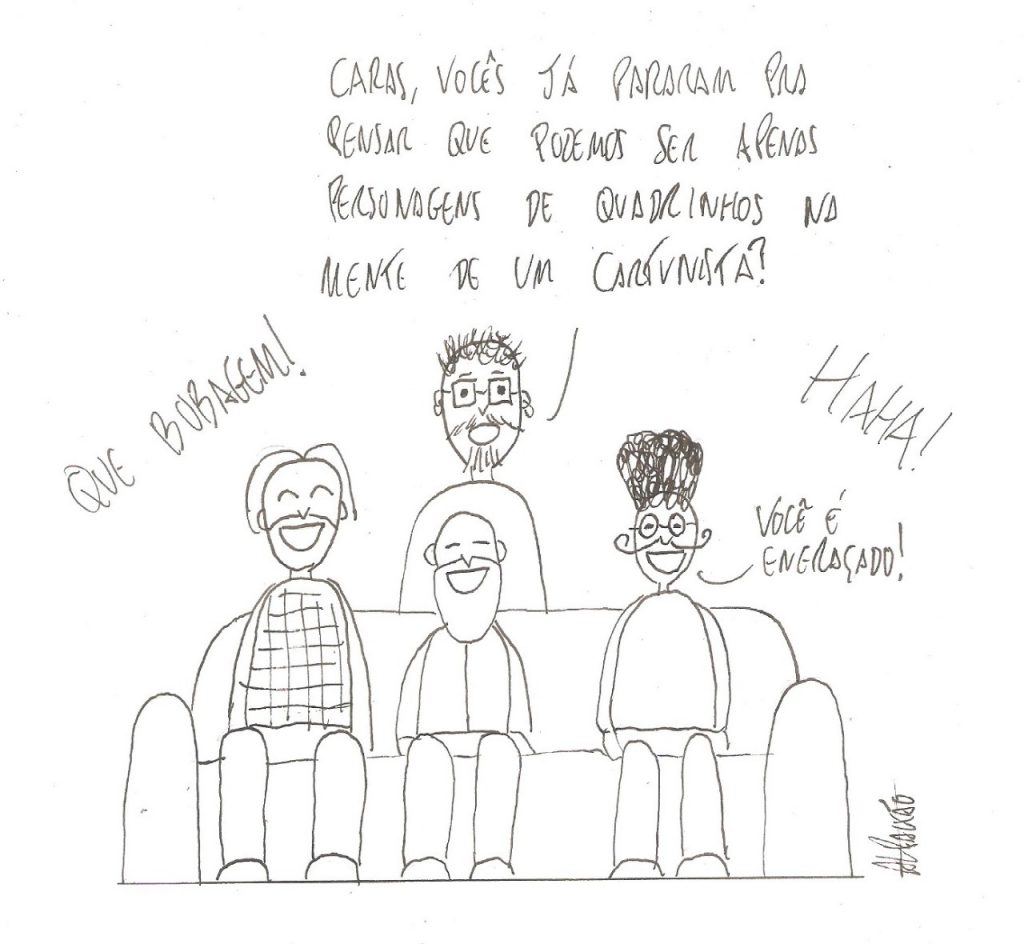 CARAS, VOCÊS JÁ PARARAM PRA
PENSAR QUE PODEMOS SER APENAS
PERSONAGENS DE QUADRINHOS NA
MENTE DE UM CARTUNISTA?
QUE BOBAGEM!
HAHA!
VOCÊ É
ENGRAÇADO!